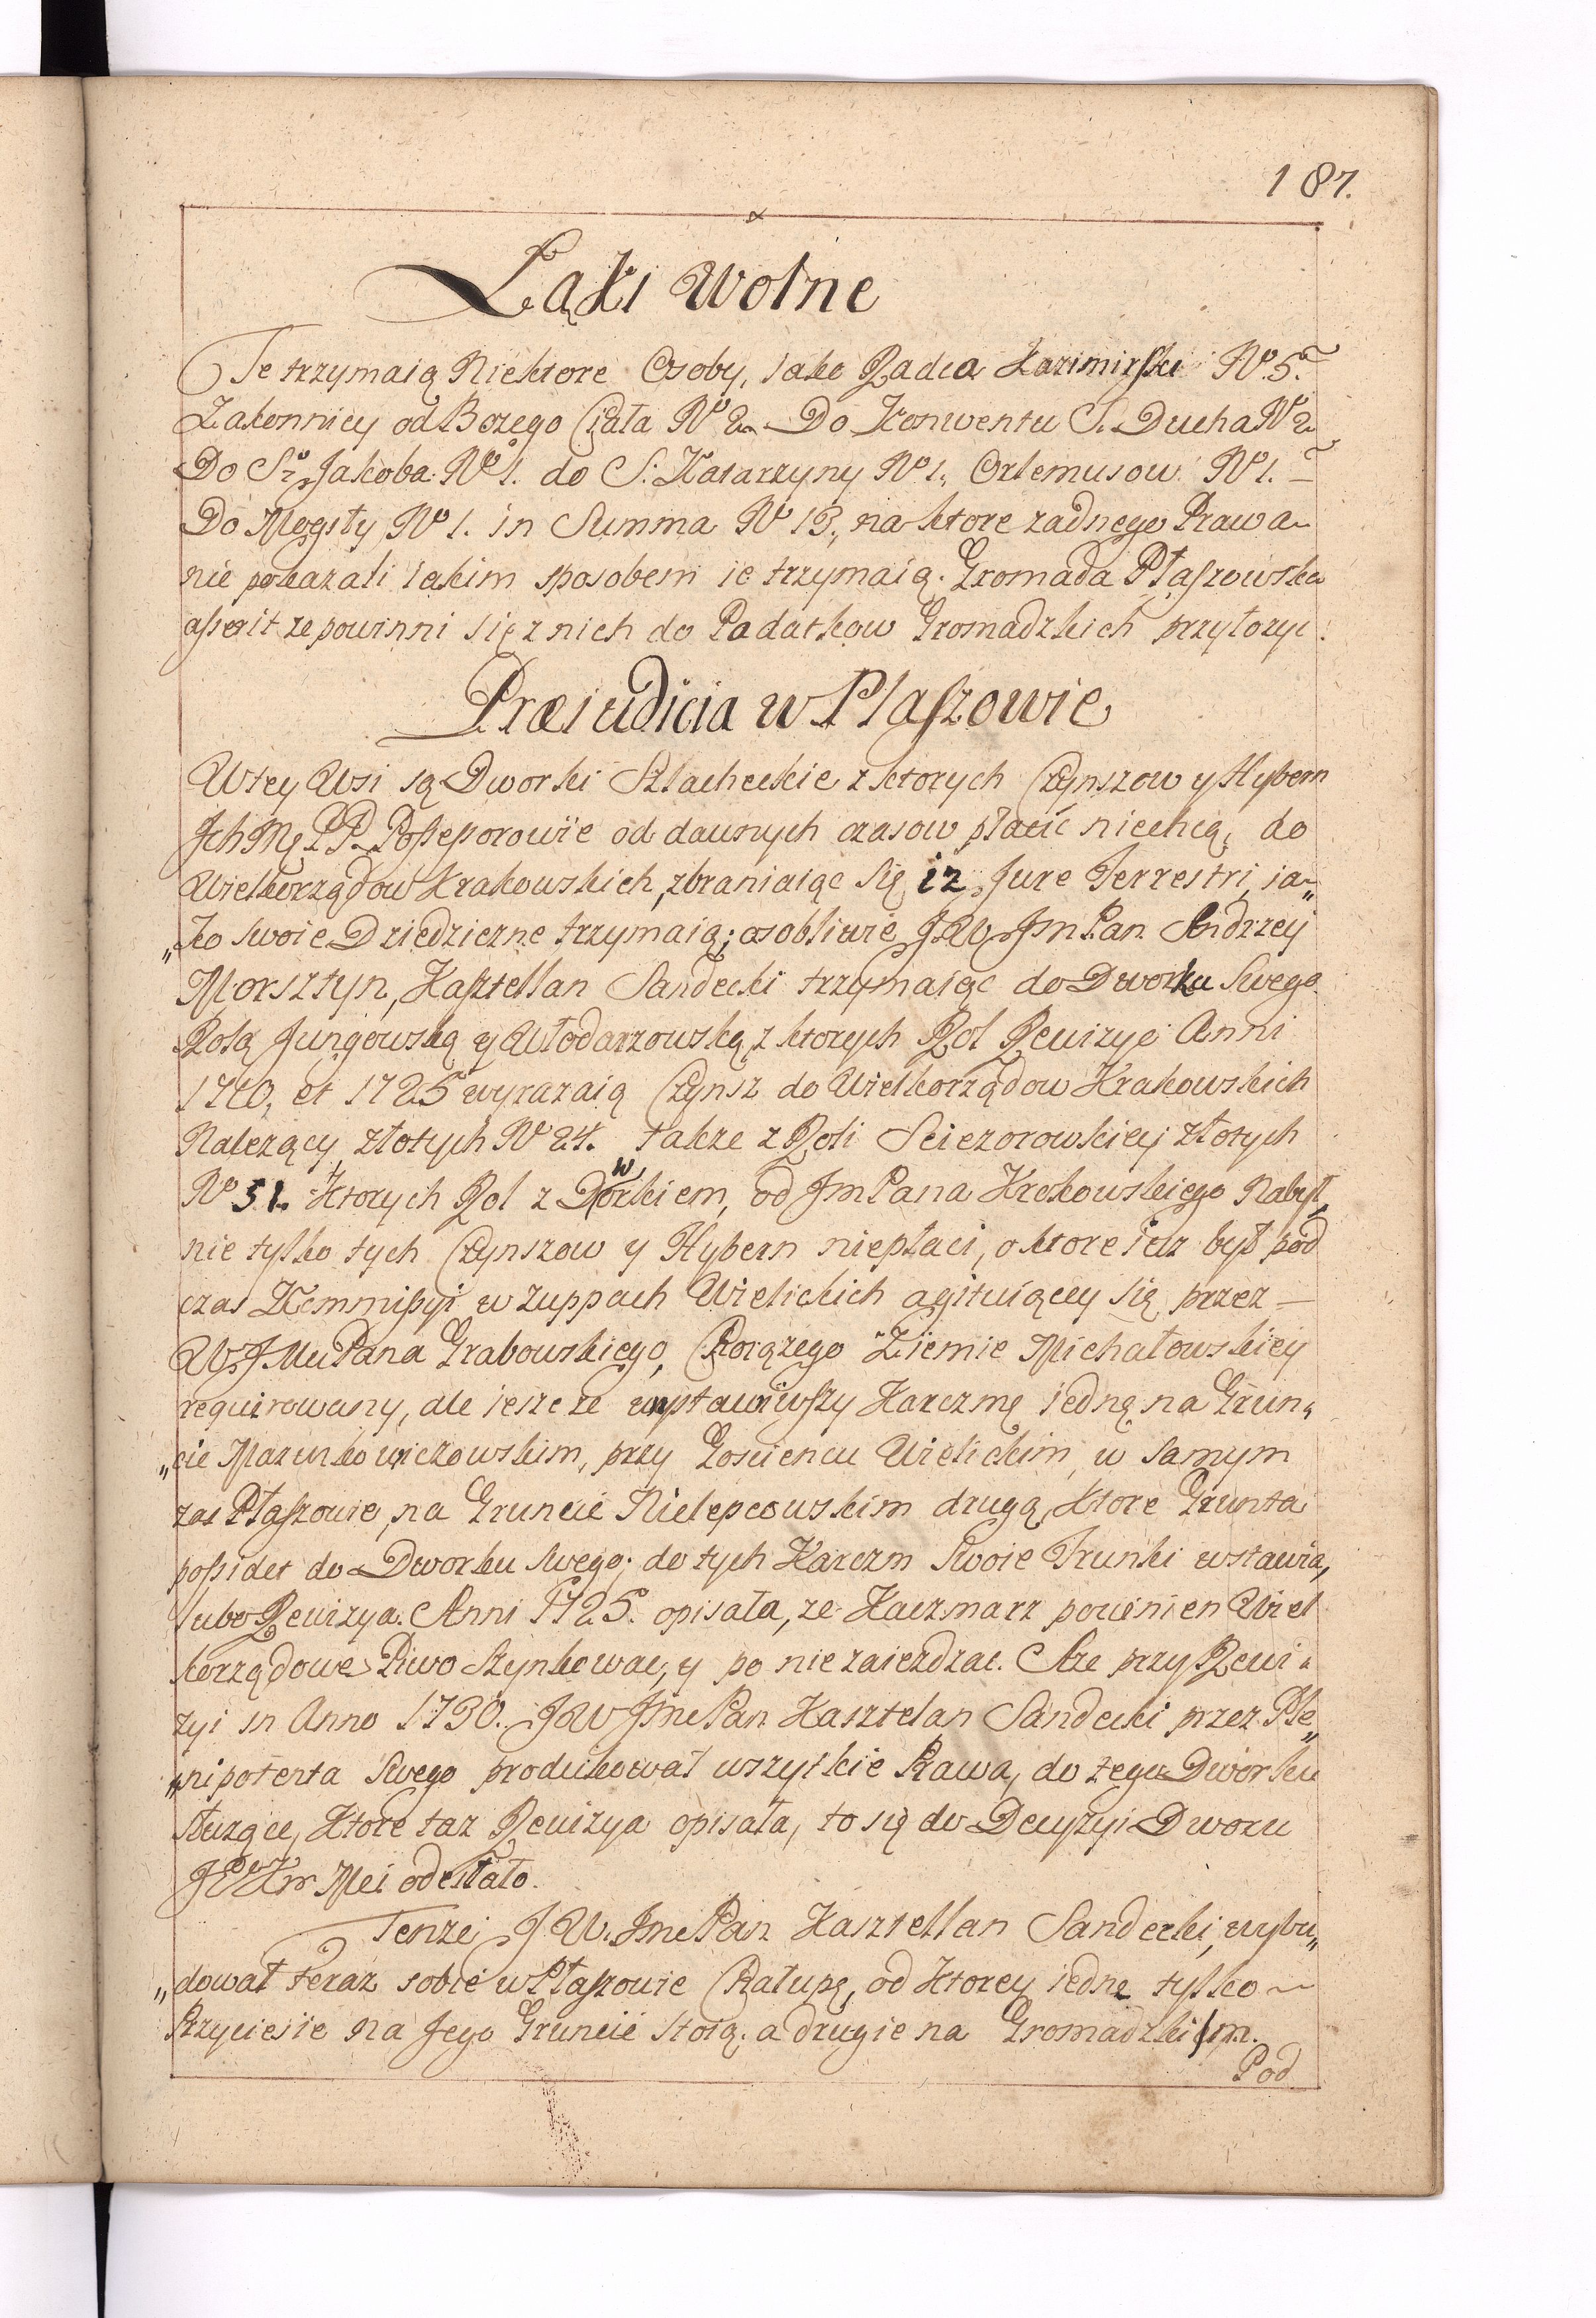 187.
Łąki Wolne
Te trzymaią Niektore Osoby, iako Radca Kazimirski N° 5.
Zakonnicy od Bożego Ciała N° 2. Do Konwentu S. Ducha N° 2
Do S° Jakoba N° 1. do S: Katarzyny N° 1., Ortemusow N° 1. –
Do Mogiły N° 1. in Summa N° 13., na ktore zadnego Prawa
nie pokazali iakim sposobem ie trzymaią. Gromada Płaszowska
asserit ze powinni się z nich do Podatkow Gromadzkich przyłozyc.
Præiudicia w Plaszowie
W tey Wsi są Dworki Szlacheckie z ktorych Czynszow y Hybern
Jch Mę PP. Possessorowie od dawnych czasow płacić niechcą, do
Wielkorządow Krakowskich, zbraniaiąc się iz Jure Terrestri, ia„
„ko swoie Dziedziczne trzymaią; osobliwie JW JmPan Andrzey
Morsztyn, Kasztellan Sandecki trzymaiąc do Dworku Swego
Rolą Jungowską y Włodarzowską, z ktorych Rol Rewizye Anni
1710, et 1725 wyrazaią Czynsz do Wielkorządow Krakowskich
Nalezący złotych N° 24. takze z Roli Sciezorowskiey złotych
N° 51. Ktorych Rol z Dworkiem, od JmPana Krokowskiego Nabył,
nie tylko tych Czynszow y Hybern niepłaci, o ktore iuz był pod
czas Kommissyi w Zuppach Wielickich agituiącey się przez –
WJMu Pana Grabowskiego, Chorązego Ziemie Michałowskiey
requirowany, ale ieszcze wystawiwszy Karczmę iedną na Grun„
„cie Mazurkowiczowskim, przy Goscieńcu Wielickim, w samym
zas Płaszowie, na Gruncie Nielepcowskim drugą, Ktore Grunta
possidet do Dworku Swego; do tych Karczm Swoie Trunki wstawia,
lubo Rewizya Anni 1725. opisała, ze Kaczmarz powinien Wiel
korządowe Piwo Szynkowac, y po nie zaiezdzac. Aze przy Rewi„
zyi in Anno 1730. JW JmePan Kasztelan Sandecki przez Ple„
„nipotenta Swego produkował wszytkie Prawa, do tego Dworku
słuzące, Ktore taz Rewizya opisała, to się do Decyzyi Dworu
JKr Mci odesłało.
Tenze JW. JmePan Kasztellan Sandecki, wybu„
„dował teraz sobie w Płaszowie Chałupę, od Ktorey iedne tylko
Przyciesie na Jego Gruncie stoią, a drugie na Gromadzkim.
Pod